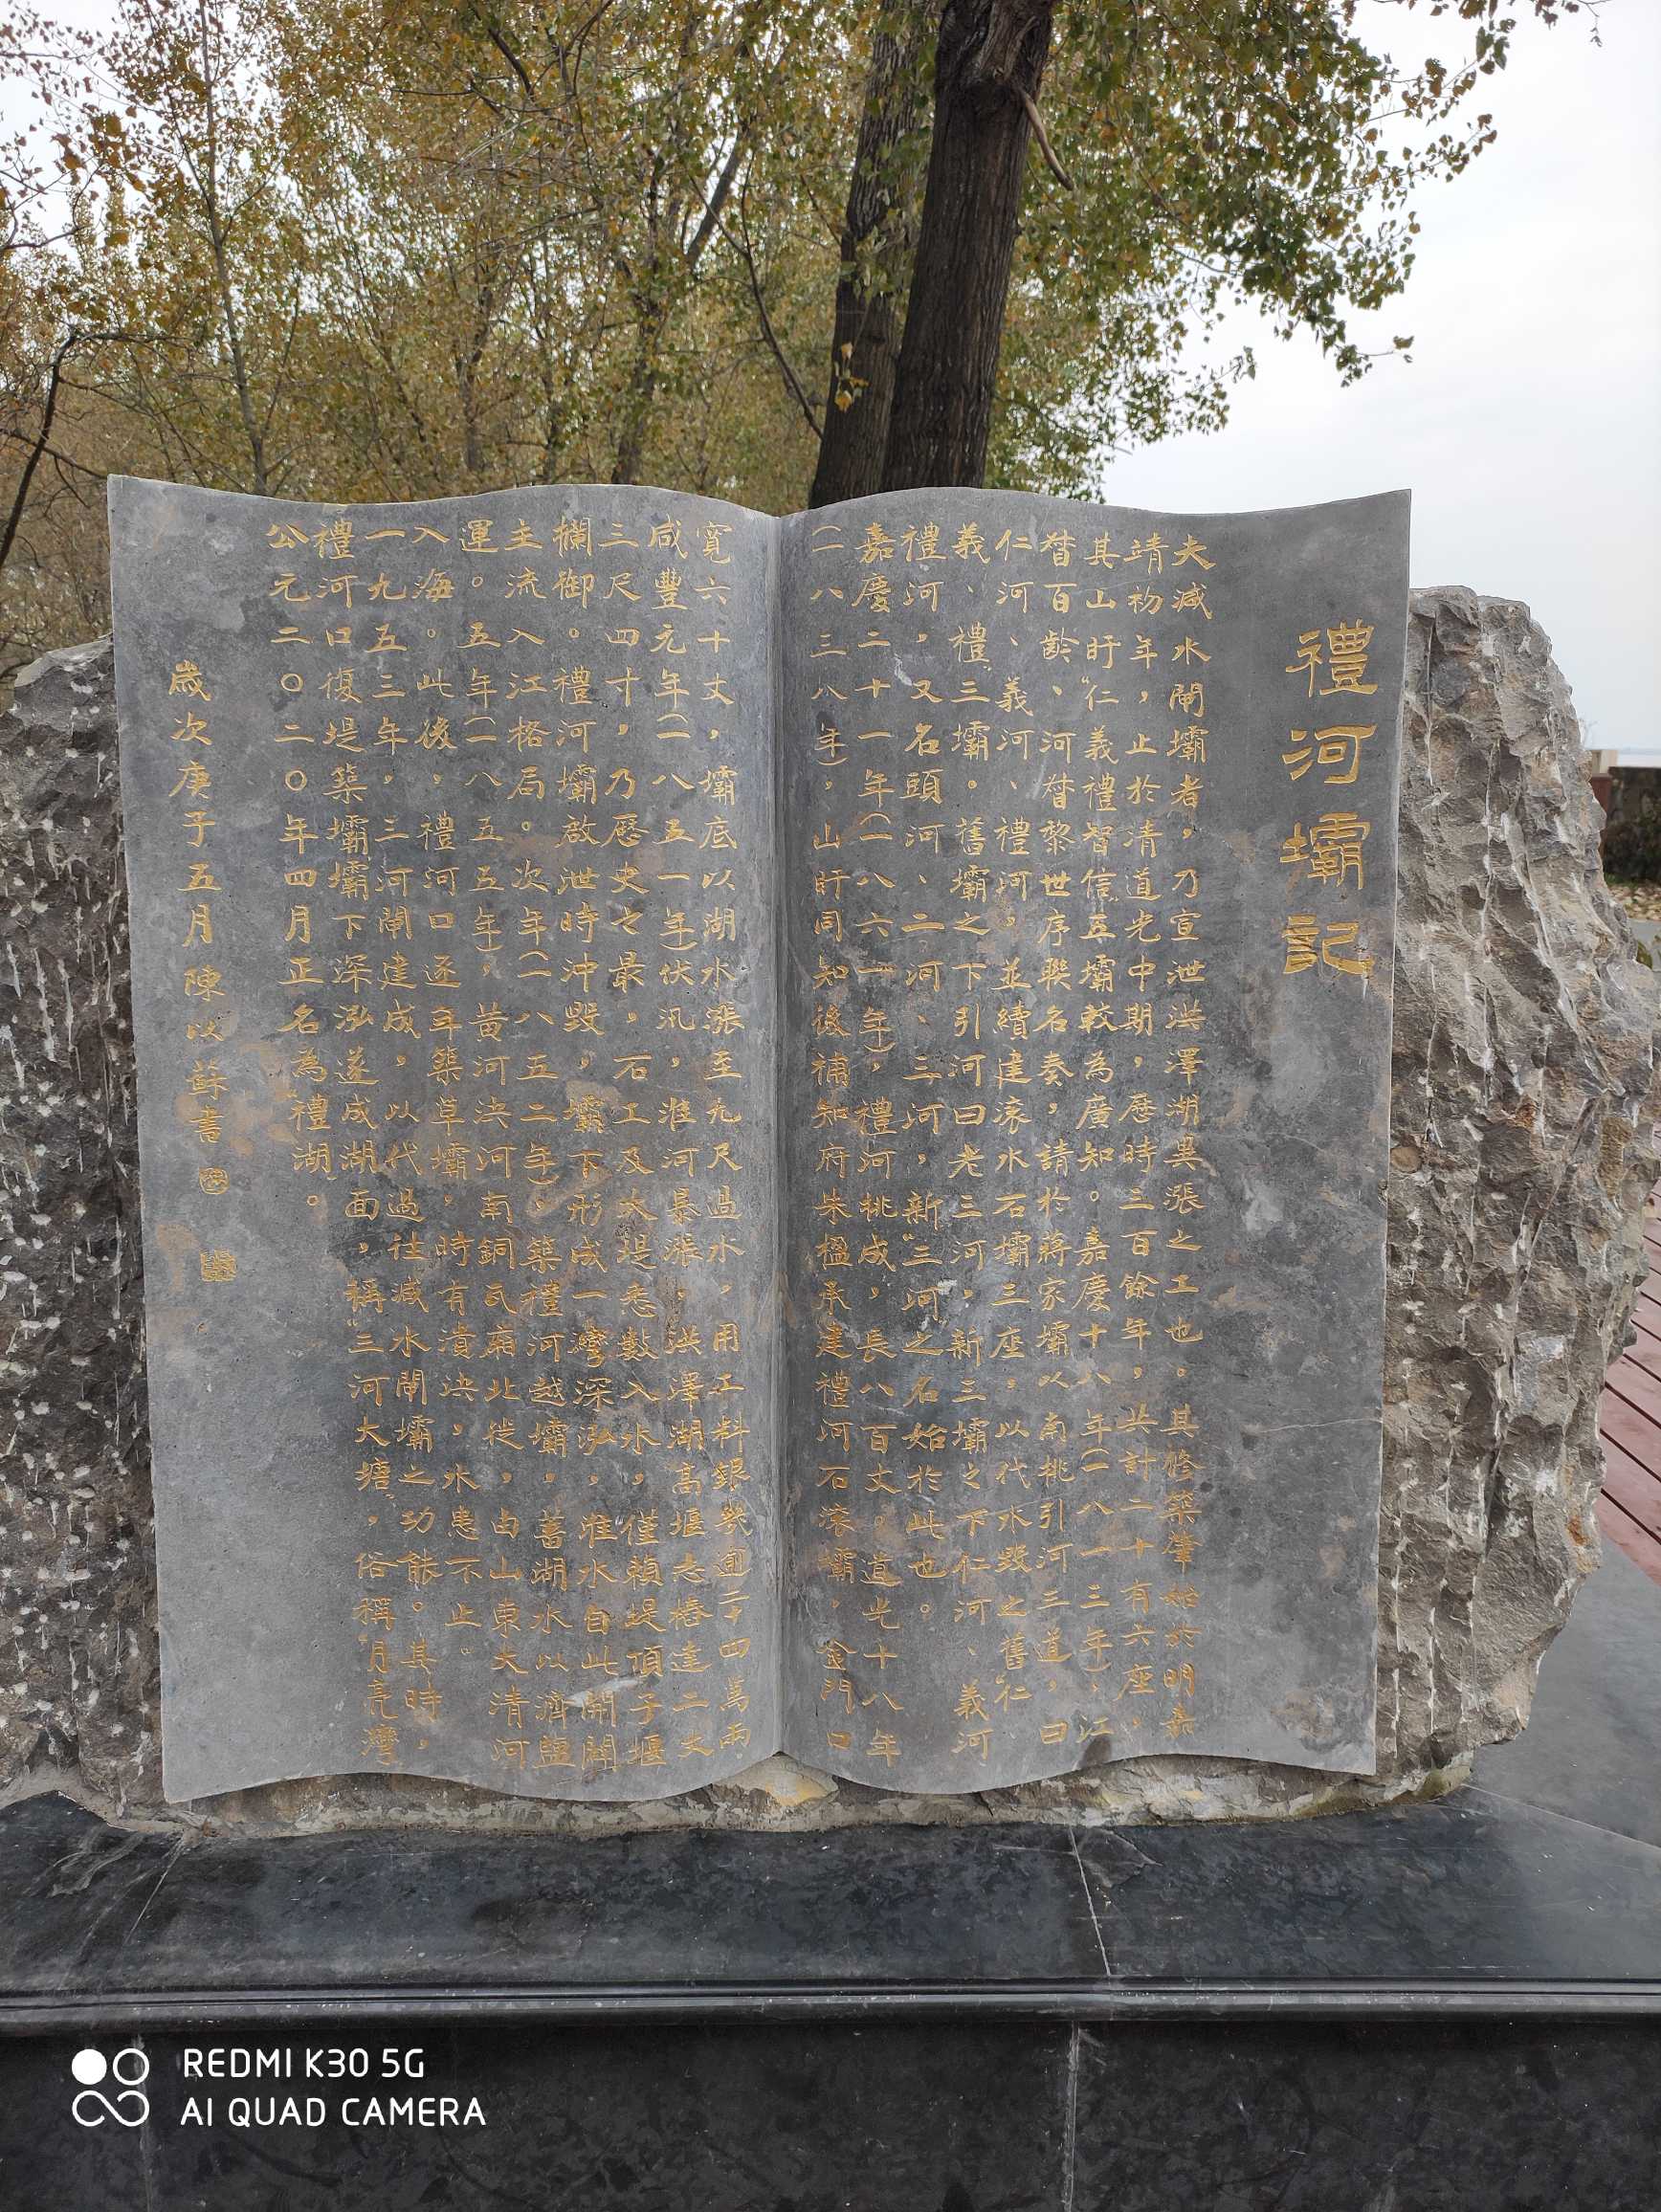 禮河壩記
夫減水閘壩者，乃宣泄洪澤湖異漲之工也。其修築肇始於明嘉
靖初年，止於清道光中期，歷時三百餘年，共計二十有六座，
其山盱“仁義禮智信”五壩較為廣知。嘉慶十八年（一八一三年），江
督百齡、河督黎世序聯名奏，請於蔣家壩以南挑引河三道，曰
仁河、義河、禮河，並續建滾水石壩三座，以代水毀之舊“仁、
義、禮”三壩。舊壩之下引河曰老三河，新三壩之下仁河、義河
禮河，又名頭河、二河、三河，新“三河之名始於此也。
嘉慶二十一年（一八六一年），禮河挑成，長八百丈。道光十八年
（一八三八年），山盱同知後補知府朱楹承建禮河石滾壩，金門口
寬六十丈，壩底以湖水漲至九尺過水，用工料銀幾逾二十四萬兩
咸豐元年（一八五一年）伏汛，淮河暴漲，洪澤湖高堰志樁達二丈
三尺四寸，乃歷史之最，石工及大堤悉數入水，僅賴堤頂子堰
攔御。禮河壩啟泄時沖毀，壩下形成一灣深泓，淮水自此開闢
主流入江格局。次年（一八五二年），築禮河越壩，蓄湖水以濟鹽
運。五年（一八五五年），黃河決河南銅瓦廂北徙，由山東大清河
入海。此後，禮河口逐年築草壩，時有潰決，水患不止。
一九五三年，三河閘建成，以代過往減水閘壩之功能。其時，
禮河口復堤築壩壩下深泓遂成湖面，稱“三河大塘”，俗稱“月亮灣
公元二〇二〇年四月正名為“禮湖”。
歲次庚子五月陳以蘇書
REDMI K30 5G
AI QUAD CAMERA